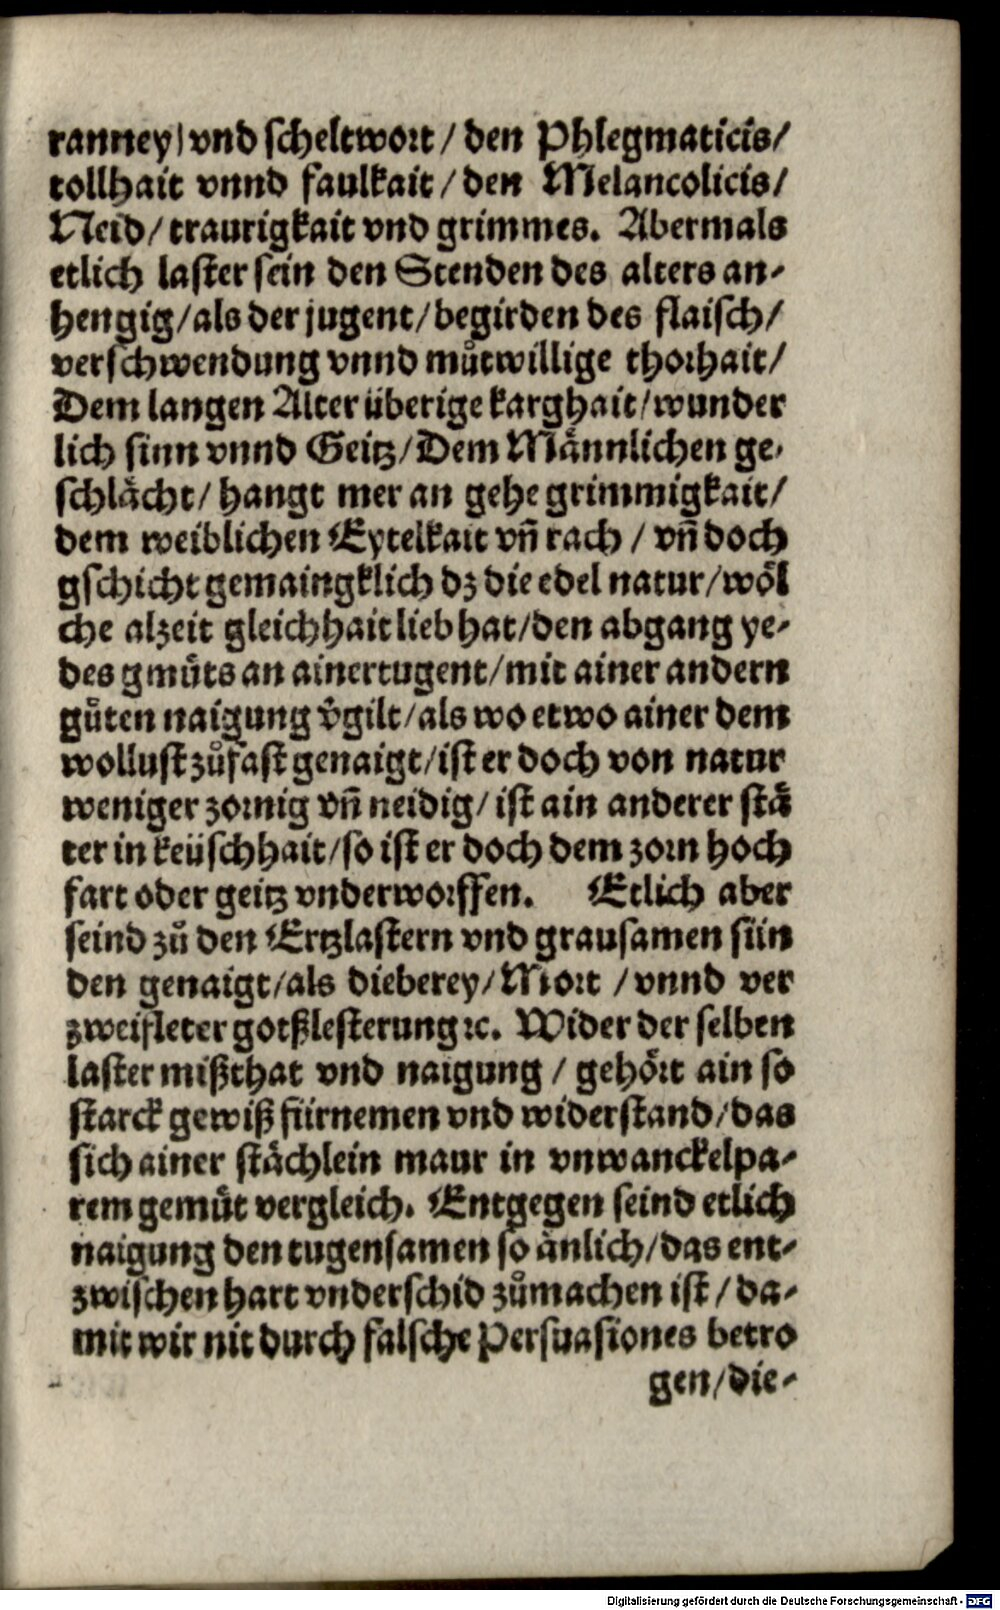 ranney/ vnd scheltwort/ den Phlegmaticis/
tollhait vnnd faulkait/ den Melancolicis/
Neid/ traurigkait vnd grimmes. Abermals
etlich laster sein den Stenden des alters an-
hengig/ als der jugent/ begirden des flaisch/
verschwendung vnnd můtwillige thorhait/
Dem langen Alter überige karghait/ wunder
lich sinn vnnd Geitz/ Dem Männlichen ge-
schlächt/ hangt mer an gehe grimmigkait/
dem weiblichen Eytelkait vn̄ rach/ vn̄ doch
gschicht gemaingklich dz die edel natur/ wöl
che alzeit gleichhait lieb hat/ den abgang ye-
des gmüts an ainer tugent/ mit ainer andern
gůten naigung v̊gilt/ als wo etwo ainer dem
wollust zůfast genaigt/ ist er doch von natur
weniger zornig vn̄ neidig/ ist ain anderer stä
ter in keüschhait/ so ist er doch dem zorn hoch
fart oder geitz vnderworffen. Etlich aber
seind zů den Ertzlastern vnd grausamen sün
den genaigt/ als dieberey/ Mort/ vnnd ver
zweifleter gotßlesterung ꝛc. Wider der selben
laster mißthat vnd naigung/ gehört ain so
starck gewiß fürnemen vnd widerstand/ das
sich ainer stächlein maur in vnwanckelpa-
rem gemüt vergleich. Entgegen seind etlich
naigung den tugensamen so änlich/ das ent-
zwischen hart vnderschid zůmachen ist/ da-
mit wir nit durch falsche Persuasiones betro
gen/ die-
Digitalisierung gefördert durch die Deutsche Forschungsgemeinschaft - DFG